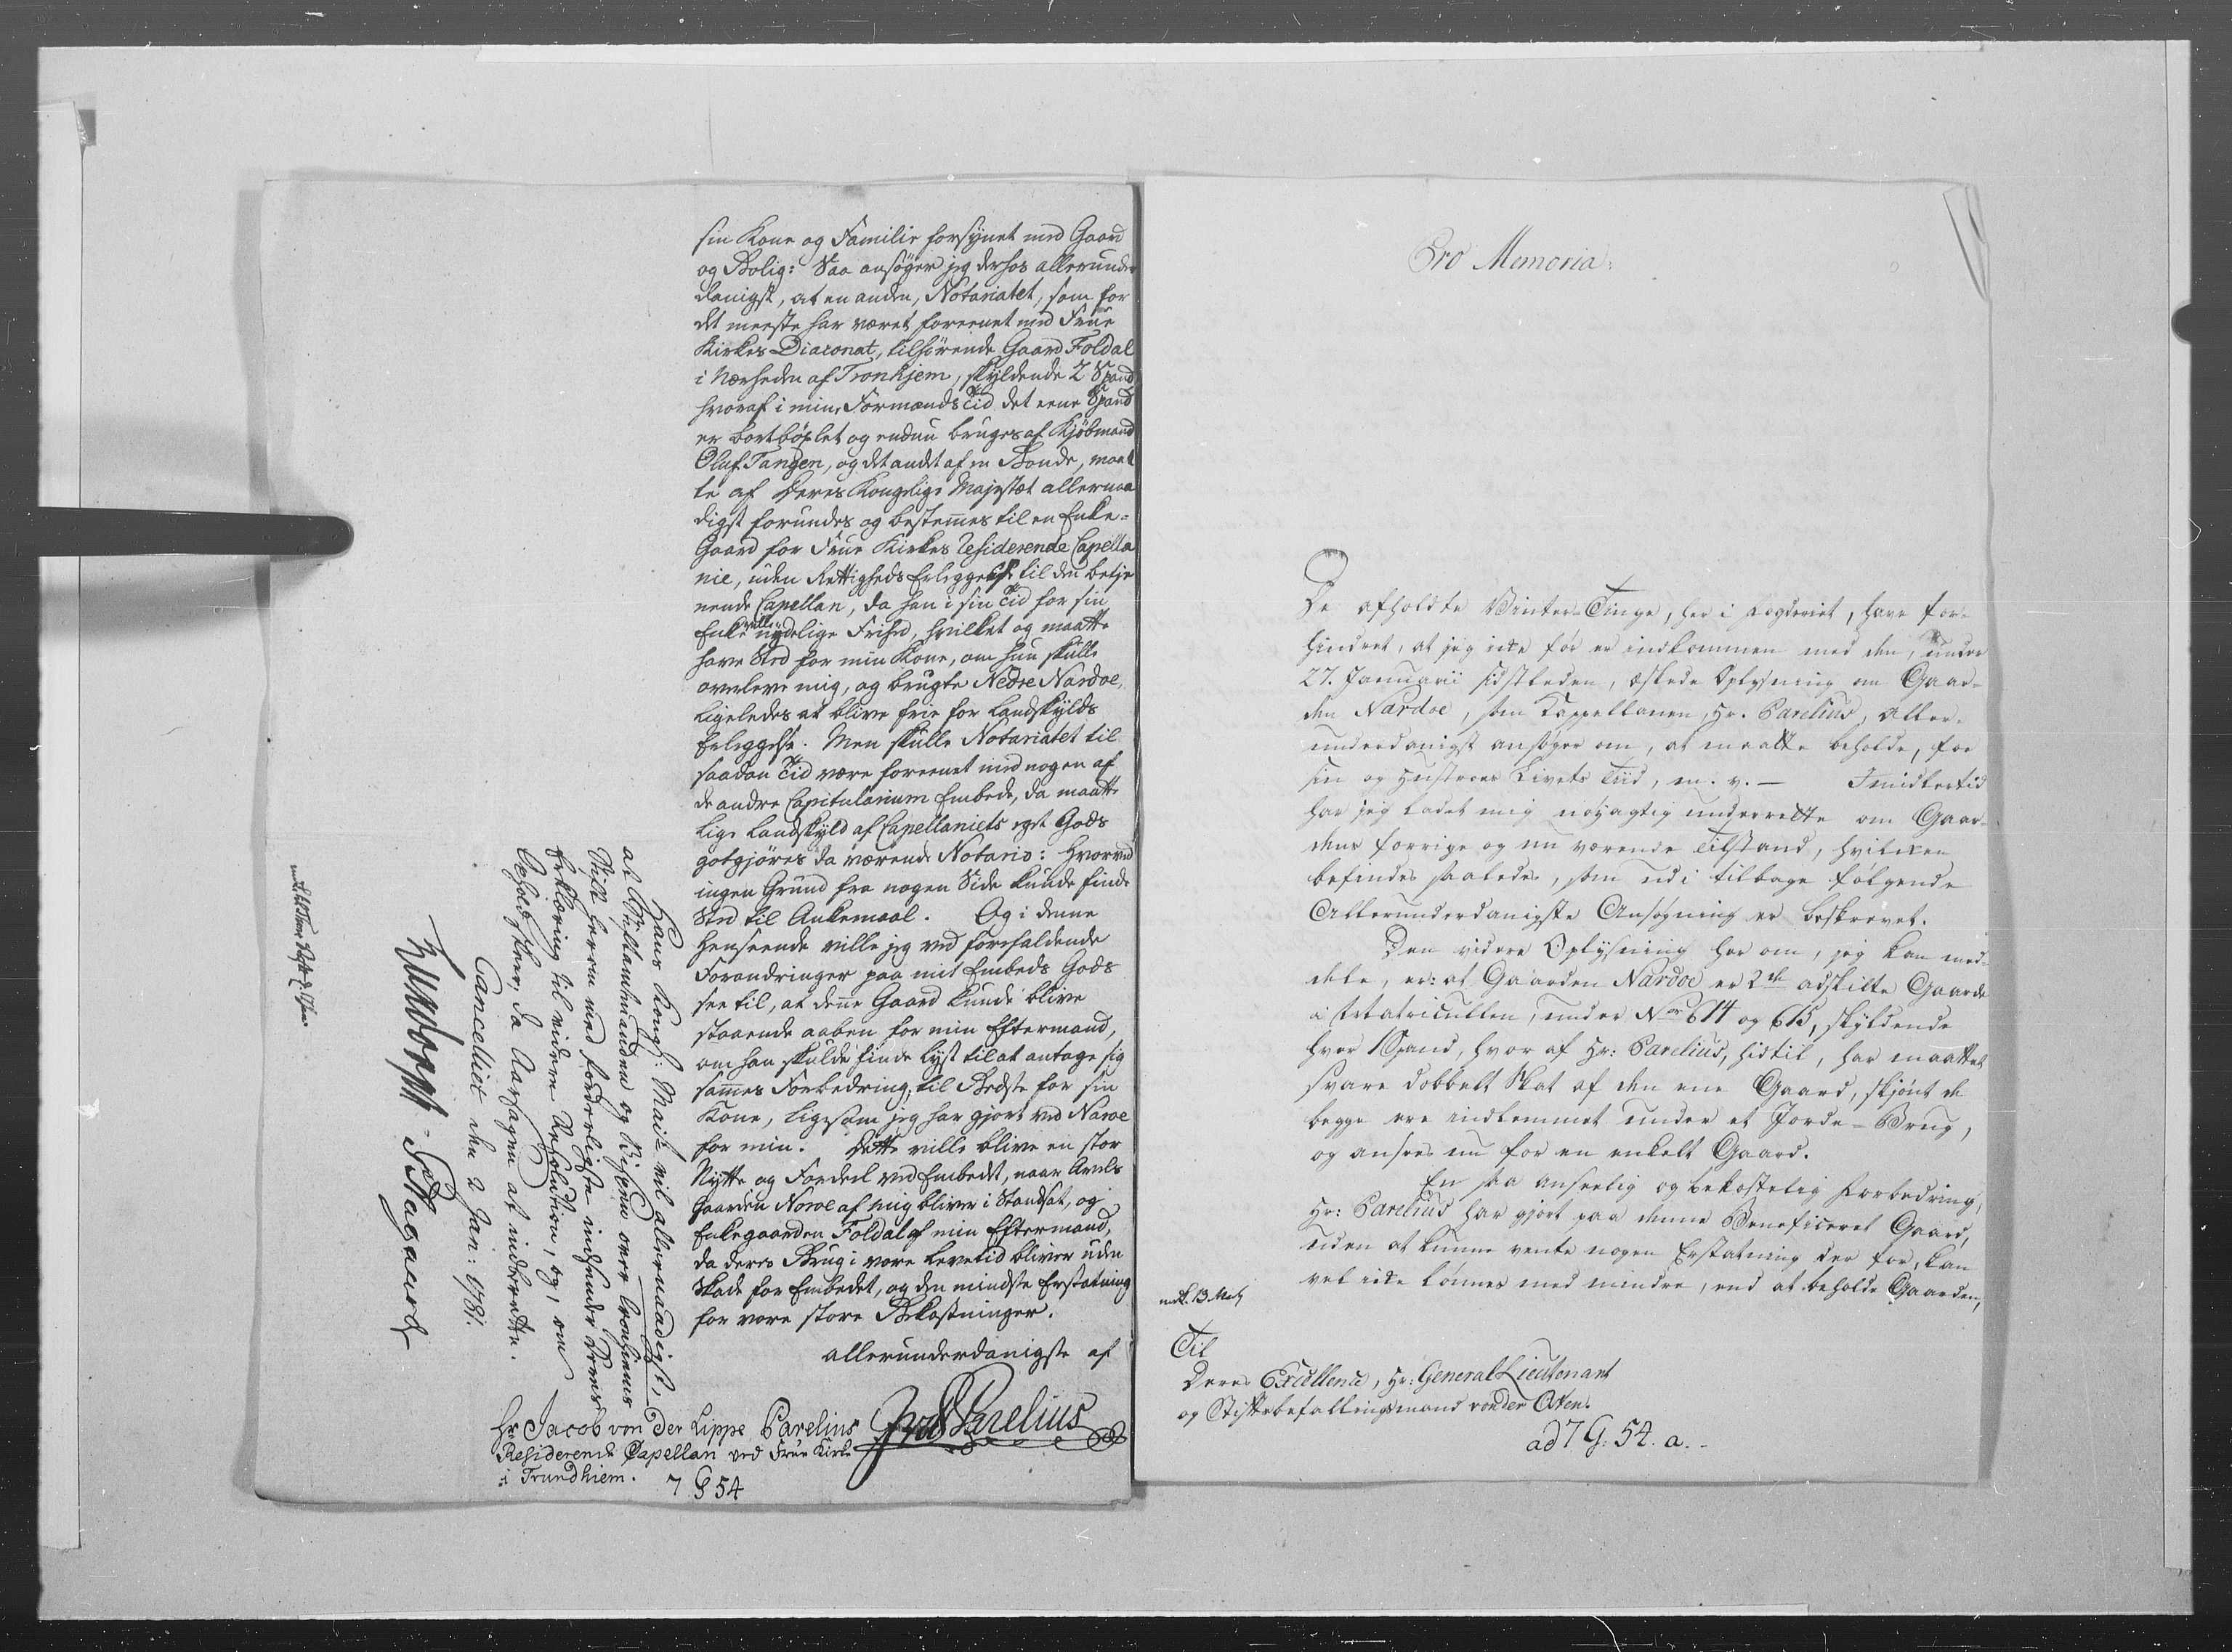 sin Kone og Familie forsynet med Gaard
og Bolig: Saa ansøger jeg derhos allerunder
danigst, at en anden, Notariatet, som for
det meeste har været foreenet med Frue
Kirkes Diaconat, tilhørende Gaard Foldal
i Nærheden af Tronhjem, skyldende 2 Spand
hvoraf i min Formands Tid det eene Spand
er bortbøxlet og endnu bruges af Kjøbmand
Oluf Tangen, og det andet af en Bonde, maat
te af Deres Kongelige Majestæt allernaa
digst forundes og bestemmes til en Enke-
Gaard for Frue Kirkes Residerende Capella
nie, uden Rettigheds Erleggelse til den betje
nende Capellan, da han i sin Tid for sin
Enke ville nÿdelige Frihed, hvilket og maatte
have Sted for min Kone, om hun skulle
overleve mig, og brugte Nedre Nardoe,
ligeledes at blive frie for Landskylds
Erleggelse. Men skulle Notariatet til
saadan Tid være foreenet med nogen af
de andre Capitularium Embede, da maatte
lige Landskyld af Capellaniets eget Gods
gotgjøres da værende Notario: Hvorved
ingen Grund fra nogen Side kunde finde
Sted til Ankemaal. Og i denne
Henseende ville jeg ved forefaldende
Forandringer paa mit Embeds Gods
see til, at denne Gaard kunde blive
staaende aaben for min Eftermand,
om han skulde finde Lyst til at antage sig
sammes Forbedring, til Bedste for sin
Kone, ligesom jeg har gjort ved Naroe
for min. Dette ville blive en stor
Nytte og Fordeel ved Embedet, naar Avels
Gaarden Naroe af mig bliver i Standsat, og
Enkegaarden Foldal af min Eftermand,
da deres Brug i vore Levetid bliver uden
Skade for Embedet, og den mindste Erstatning
for vore store Bekostninger.
allerunderdanigste af
JvdLParelius
Hr Jacob von Der Lippe Parelius
Residerende Capellan ved Frue Kirke
i Trundhiem.
7 G 54
Hans Kongl: Mait vil allernaadigst,
at Stiftamtmanden og Bispen over Tronhiems
Stift herom med forderligste indsender Deres
Erklæring til videre Resolution, og, om
Ophold skeer, da Aarsagen at indberette.
Cancelliet den 2 Jan: 1781.
Luxdorph. Aagaard
Pro Memoria.
De afholdte Vinter-Tinge, her i Fogderiet, have for-
hindret, at jeg icke før er indkommen med den, under
27. Januarii sidstleden, æskede Oplysning om Gaar-
den Nardoe, som Cappellanen, Hr. Parelius, Aller-
underdanigst ansøger om, at maatte beholde, for
sin og Hustrues Livets Tiid, m. v. — Imidlertid
har jeg ladet mig nøyagtig underrette om Gaar-
dens forrige og nu værende Tilstand, hvilken
befindes saaledes, som udi tilbage følgende
Allerunderdanigste Ansøgning er beskrevet.
Den videre Oplysning her om, jeg kan med-
dele, er: at Gaarden Nardoe er 2de adskilte Gaarde
i Matriculten, under No 614 og 615, skyldende
hver 1 Spand, hvor af Hr: Parelius, hidtil, har maattet
svare dobbelt Skat af den ene Gaard, skjønt de
begge ere indlemmet under et Jorde-Brug,
og ansees nu for en enkelt Gaard.
En saa anseelig og bekostelig Forbedring,
Hr: Parelius har gjort paa denne Beneficeret Gaard,
uden at kunne vente nogen Erstatning der for, kan
vel icke lønnes med mindre, end at beholde Gaarden,
Til
Deres Excellence, Hr: General Lieutenant
og Stiftsbefallingsmand von der Osten.
ad 7 G: 54. a.